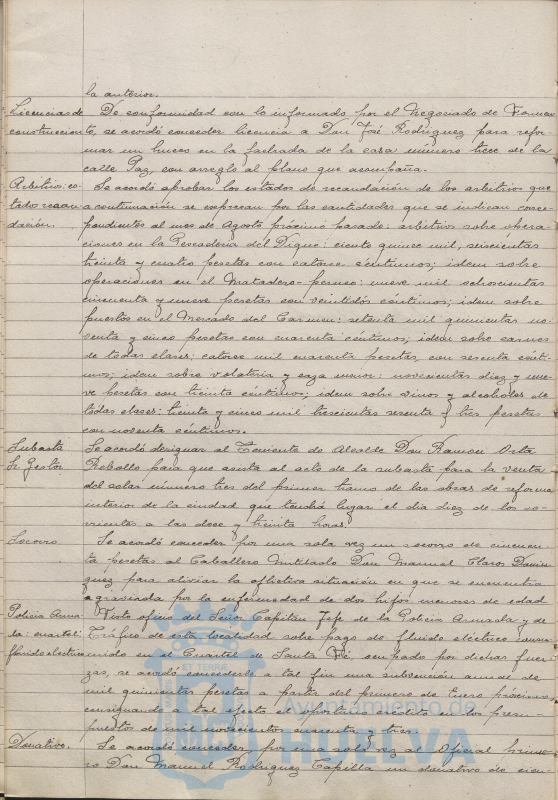 la anterior.
Licencias de De conformidad con lo informado por el Negociado de Fomen
construccion to, se acordó conceder licencia a Don José Rodriguez para refor
mar un hueco en la fachada de la casa número trece de la
calle Paz, con arreglo al plano que acompaña.
Arbitrios: es- Se acordó aprobar los estados de recaudación de los arbitrios que
tado recau- a continuación se expresan por las cantidades que se indican corres-
dación. pondientes al mes de Agosto próximo pasado: arbitrios sobre opera-
ciones en la Pescadería del Dique: ciento quince mil, seiscientas
treinta y cuatro pesetas con catorce céntimos; idem sobre
operaciones en el Matadero: nueve mil ochocientas
cincuenta y nueve pesetas con veintidós céntimos; idem sobre
puestos en el Mercado del Carmen: setenta mil quinientas no-
venta y cinco pesetas con cuarenta céntimos; idem sobre carnes
de todas clases: catorce mil cuarenta pesetas, con sesenta cénti-
mos; idem sobre volatería y caza menor: novecientas diez y nue-
ve pesetas con treinta céntimos; idem sobre vinos y alcoholes de
todas clases: treinta y cinco mil trescientas sesenta y tres pesetas
con noventa céntimos.
Subasta Se acordó designar al Teniente de Alcalde Don Ramon Orta
Sr. Gestor Rebollo para que asista al acto de la subasta para la venta
del solar número tres del primer tramo de las obras de reforma
interior de la ciudad que tendrá lugar el día diez de los co-
rrientes a las doce y treinta horas.
Socorro Se acordó conceder por una sola vez un socorro de cincuen-
ta pesetas al Caballero Mutilado Don Manuel Claros Domin
guez para aliviar la aflictiva situación en que se encuentra
agravada por la enfermedad de dos hijos menores de edad
Policia Arma- Visto oficio del Señor Capitán Jefe de la Policia Armada y de
da: cuartel: Tráfico de esta localidad sobre pago de fluido eléctrico consu-
fluido electrico mido en el Cuartel de Santa Fé ocupado por dichas fuer
zas, se acordó concederle a tal fin una subvención anual de
mil quinientas pesetas a partir del primero de Enero próximo,
consignando a tal efecto el oportuno crédito en los presu-
puestos de mil novecientos cuarenta y tres.
Donativo. Se acordó conceder, por una sola vez al Oficial prime-
ro Don Manuel Rodriguez Capilla un donativo de cien-
Ayuntamiento de
HUELVA